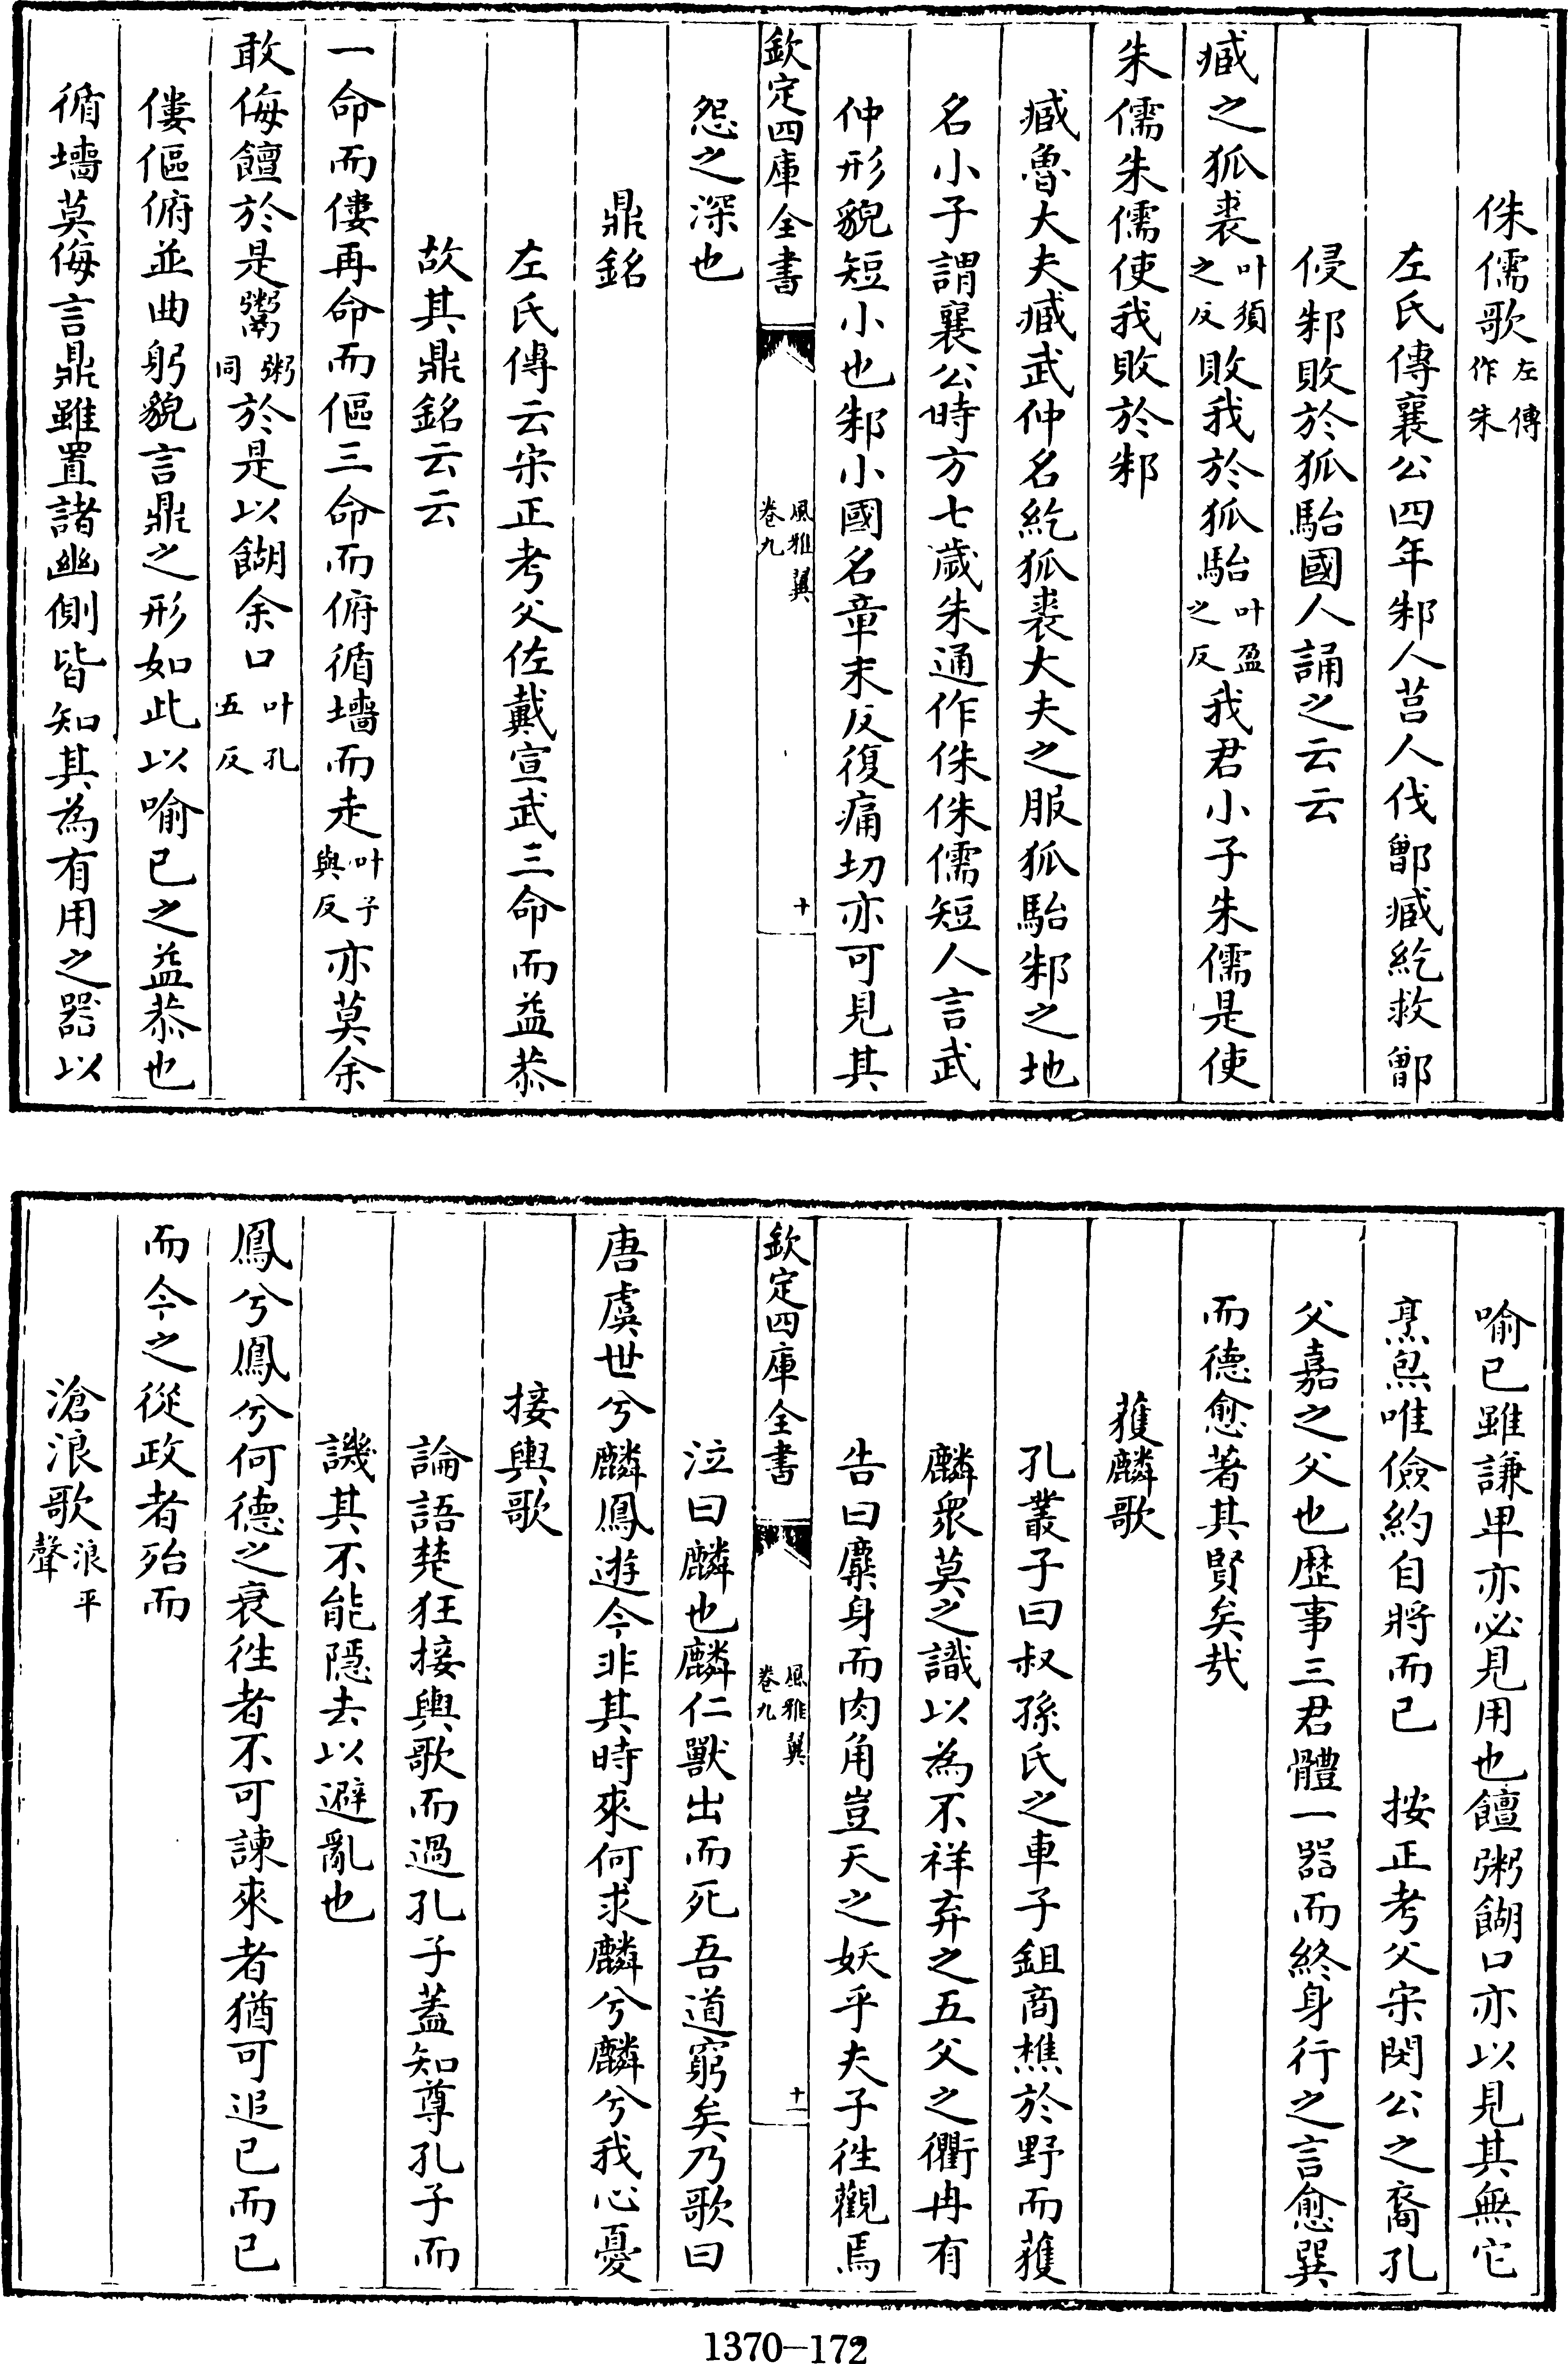 侏儒歌左傳作朱
左氏傳襄公四年邾人莒人伐鄫臧紇救鄫
侵邾敗於狐駘國人誦之云云
臧之狐裘叶須之反敗我於狐駘叶盈之反我君小子朱儒是使
朱儒朱儒使我敗於邾
臧魯大夫臧武仲名紇狐裘大夫之服狐駘邾之地
名小子謂襄公時方七歲朱通作侏侏儒短人言武
仲形貌短小也邾小國名章末反復痛切亦可見其
欽定四庫全書 風雅翼卷九 十
怨之深也
鼎銘
左氏傳云宋正考父佐戴宣武三命而益恭
故其鼎銘云云
一命而僂再命而傴三命而俯循墻而走叶子與反亦莫余
敢侮饘於是鬻粥同於是以餬余口叶孔五反
僂傴俯並曲躬貌言鼎之形如此以喻已之益恭也
循墻莫侮言鼎雖置諸幽側皆知其為有用之器以
喻已雖謙卑亦必見用也饘粥餬口亦以見其無它
烹炰唯儉約自將而已 按正考父宋閔公之裔孔
父嘉之父也歴事三君體一器而終身行之言愈巽
而德愈著其賢矣哉
獲麟歌
孔叢子曰叔孫氏之車子鉏商樵於野而獲
麟衆莫之識以為不祥弃之五父之衢冉有
告曰麇身而肉角豈天之妖乎夫子徃觀焉
欽定四庫全書 風雅翼卷九 十一
泣曰麟也麟仁獸出而死吾道窮矣乃歌曰
唐虞世兮麟鳳遊今非其時來何求麟兮麟兮我心憂
接輿歌
論語楚狂接輿歌而過孔子葢知尊孔子而
譏其不能隱去以避亂也
鳳兮鳳兮何德之衰徃者不可諫來者猶可追已而已
而今之從政者殆而
滄浪歌浪平聲
1370-172